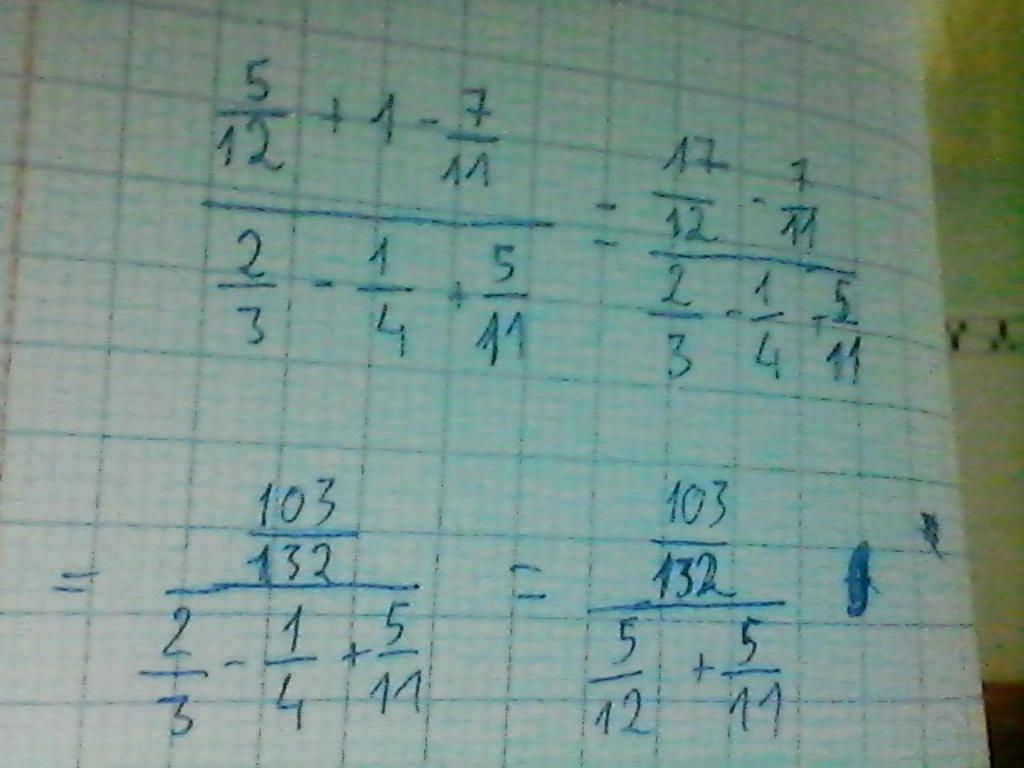 5/12 + 1 - 7/11 / 2/3 - 1/4 + 5/11 = 17/12 - 7/11 / 2/3 - 1/4 + 5/11
= 103/132 / 2/3 - 1/4 + 5/11 = 103/132 / 5/12 + 5/11